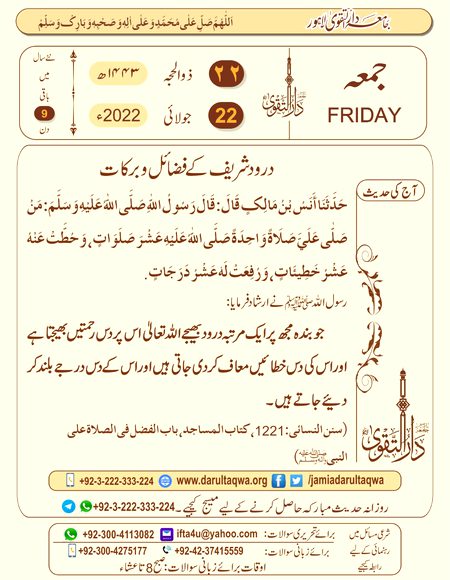 جامعہ دارالتقویٰ لاہور
اَللّٰهُمَّ صَلِّ عَلٰى مُحَمَّدٍ وَّعَلٰى اٰلِهٖ وَصَحْبِهٖ وَبَارِكْ وَسَلِّمْ
جمعہ
FRIDAY
دارالتقویٰ
۲۲ ذوالحجہ ۱۴۴۳ھ
22 جولائی 2022ء
نئے سال
میں
باقی
9
دن
درود شریف کے فضائل و برکات
آج کی حدیث
حَدَّثَنَا أَنَسُ بْنُ مَالِكٍ قَالَ: قَالَ رَسُولُ اللهِ صَلَّى اللهُ عَلَيْهِ وَسَلَّمَ: مَنْ
صَلَّى عَلَيَّ صَلَاةً وَاحِدَةً صَلَّى اللهُ عَلَيْهِ عَشْرَ صَلَوَاتٍ، وَحُطَّتْ عَنْهُ
عَشْرُ خَطِيئَاتٍ، وَرُفِعَتْ لَهُ عَشْرُ دَرَجَاتٍ.
رسول اللہ ﷺ نے ارشاد فرمایا:
جو بندہ مجھ پر ایک مرتبہ درود بھیجے اللہ تعالیٰ اس پر دس رحمتیں بھیجتا ہے
اور اس کی دس خطائیں معاف کر دی جاتی ہیں اور اس کے دس درجے بلند کر
دیئے جاتے ہیں۔
(سنن النسائی: 1221، کتاب المساجد، باب الفضل فی الصلاة علی
النبی ﷺ)
دارالتقویٰ
+92-3-222-333-224 www.darultaqwa.org /jamiadarultaqwa
روزانہ حدیث مبارکہ حاصل کرنے کے لیے میسج کیجیے۔ +92-3-222-333-224
شرعی مسائل میں
رہنمائی کے لیے
رابطہ کیجیے
برائے تحریری سوالات: ifta4u@yahoo.com +92-300-4113082
برائے زبانی سوالات: +92-42-37415559 +92-300-4275177
اوقات برائے زبانی سوالات: صبح 8 تا عشاء